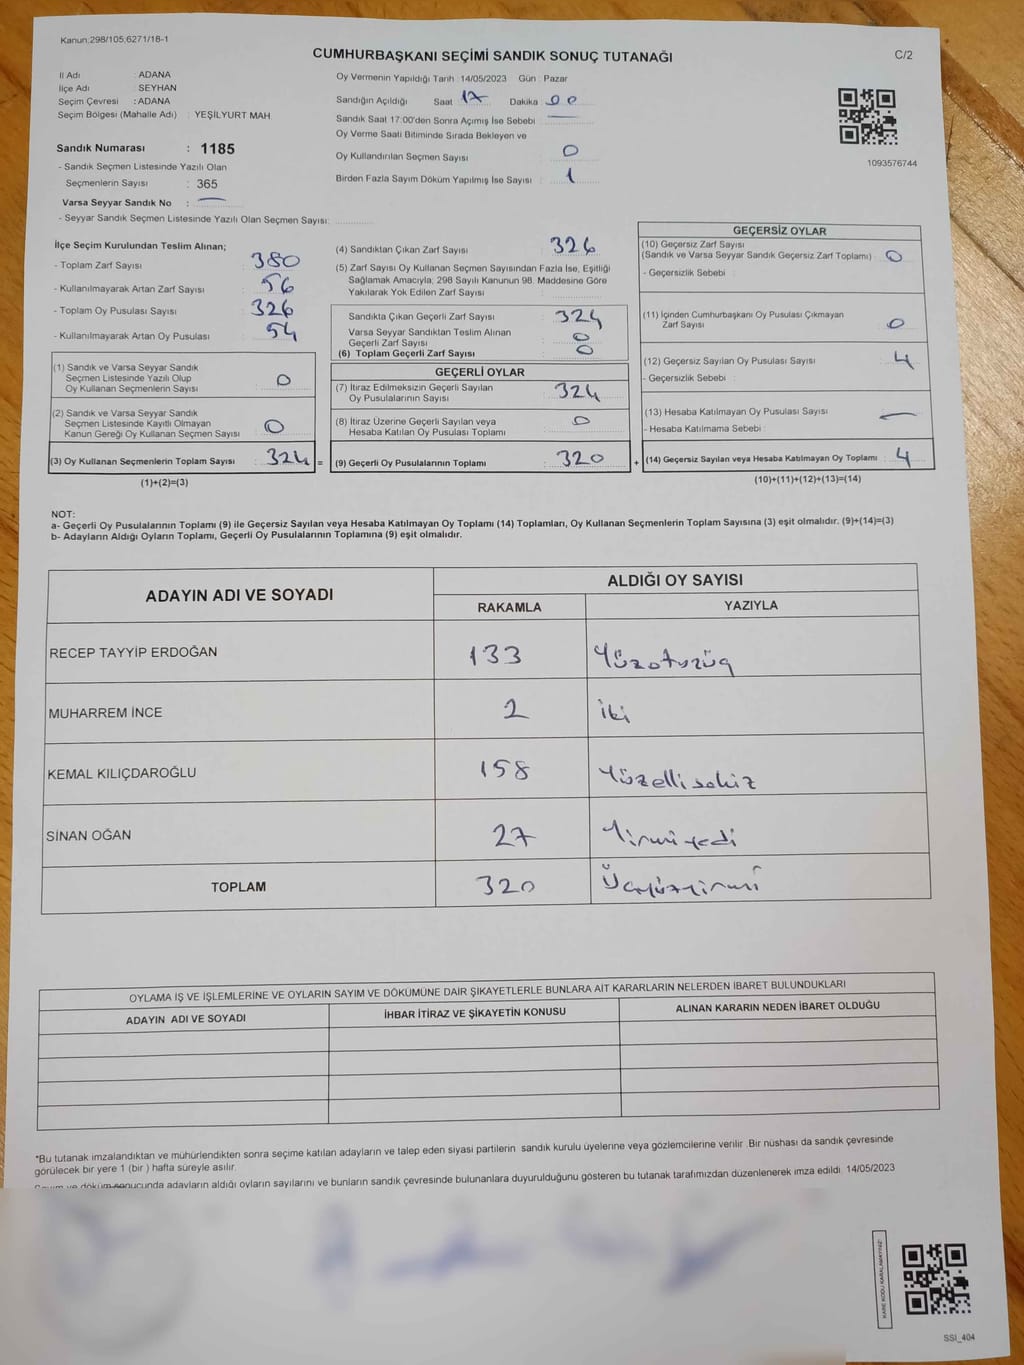 Kanun;298/105;6271/18-1
CUMHURBAŞKANI SEÇİMİ SANDIK SONUÇ TUTANAĞI
C/2
İl Adı : ADANA
İlçe Adı : SEYHAN
Seçim Çevresi : ADANA
Seçim Bölgesi (Mahalle Adı) : YEŞİLYURT MAH.
Oy Vermenin Yapıldığı Tarih :14/05/2023 Gün : Pazar
Sandığın Açıldığı Saat 17 Dakika 00
Sandık Saat 17:00'den Sonra Açımış İse Sebebi : —
Oy Verme Saati Bitiminde Sırada Bekleyen ve
Oy Kullandırılan Seçmen Sayısı : 0
Birden Fazla Sayım Döküm Yapılmış İse Sayısı : 1
1093576744
Sandık Numarası : 1185
- Sandık Seçmen Listesinde Yazılı Olan
Seçmenlerin Sayısı : 365
Varsa Seyyar Sandık No : —
- Seyyar Sandık Seçmen Listesinde Yazılı Olan Seçmen Sayısı:
İlçe Seçim Kurulundan Teslim Alınan;
- Toplam Zarf Sayısı : 380
- Kullanılmayarak Artan Zarf Sayısı : 56
- Toplam Oy Pusulası Sayısı : 326
- Kullanılmayarak Artan Oy Pusulası : 54
(1) Sandık ve Varsa Seyyar Sandık
Seçmen Listesinde Yazılı Olup
Oy Kullanan Seçmenlerin Sayısı : 0
(2) Sandık ve Varsa Seyyar Sandık
Seçmen Listesinde Kayıtlı Olmayan
Kanun Gereği Oy Kullanan Seçmen Sayısı : 0
(3) Oy Kullanan Seçmenlerin Toplam Sayısı : 324 =
(1)+(2)=(3)
(4) Sandıktan Çıkan Zarf Sayısı : 326
(5) Zarf Sayısı Oy Kullanan Seçmen Sayısından Fazla İse, Eşitliği
Sağlamak Amacıyla; 298 Sayılı Kanunun 98. Maddesine Göre
Yakılarak Yok Edilen Zarf Sayısı :
Sandıkta Çıkan Geçerli Zarf Sayısı : 324
Varsa Seyyar Sandıktan Teslim Alınan
Geçerli Zarf Sayısı : 0
(6) Toplam Geçerli Zarf Sayısı : 0
GEÇERLİ OYLAR
(7) İtiraz Edilmeksizin Geçerli Sayılan
Oy Pusulalarının Sayısı : 324
(8) İtiraz Üzerine Geçerli Sayılan veya
Hesaba Katılan Oy Pusulası Toplamı : 0
(9) Geçerli Oy Pusulalarının Toplamı : 320 +
GEÇERSİZ OYLAR
(10) Geçersiz Zarf Sayısı
(Sandık ve Varsa Seyyar Sandık Geçersiz Zarf Toplamı) : 0
- Geçersizlik Sebebi :
(11) İçinden Cumhurbaşkanı Oy Pusulası Çıkmayan
Zarf Sayısı : 0
(12) Geçersiz Sayılan Oy Pusulası Sayısı : 4
- Geçersizlik Sebebi :
(13) Hesaba Katılmayan Oy Pusulası Sayısı : —
- Hesaba Katılmama Sebebi :
(14) Geçersiz Sayılan veya Hesaba Katılmayan Oy Toplamı : 4
(10)+(11)+(12)+(13)=(14)
NOT:
a- Geçerli Oy Pusulalarının Toplamı (9) ile Geçersiz Sayılan veya Hesaba Katılmayan Oy Toplamı (14) Toplamları, Oy Kullanan Seçmenlerin Toplam Sayısına (3) eşit olmalıdır. (9)+(14)=(3)
b- Adayların Aldığı Oyların Toplamı, Geçerli Oy Pusulalarının Toplamına (9) eşit olmalıdır.
ADAYIN ADI VE SOYADI
ALDIĞI OY SAYISI
RAKAMLA YAZIYLA
RECEP TAYYİP ERDOĞAN 133 Yüzotuzüç
MUHARREM İNCE 2 iki
KEMAL KILIÇDAROĞLU 158 Yüzellisekiz
SİNAN OĞAN 27 Yirmiyedi
TOPLAM 320 Üçyüzyirmi
OYLAMA İŞ VE İŞLEMLERİNE VE OYLARIN SAYIM VE DÖKÜMÜNE DAİR ŞİKAYETLERLE BUNLARA AİT KARARLARIN NELERDEN İBARET BULUNDUKLARI
ADAYIN ADI VE SOYADI İHBAR İTİRAZ VE ŞİKAYETİN KONUSU ALINAN KARARIN NEDEN İBARET OLDUĞU
*Bu tutanak imzalandıktan ve mühürlendikten sonra seçime katılan adayların ve talep eden siyasi partilerin sandık kurulu üyelerine veya gözlemcilerine verilir .Bir nüshası da sandık çevresinde
görülecek bir yere 1 (bir ) hafta süreyle asılır.
Sayım ve döküm sonucunda adayların aldığı oyların sayılarını ve bunların sandık çevresinde bulunanlara duyurulduğunu gösteren bu tutanak tarafımızdan düzenlenerek imza edildi. 14/05/2023
KARE KODU KARALAMAYINIZ!
SSI_404